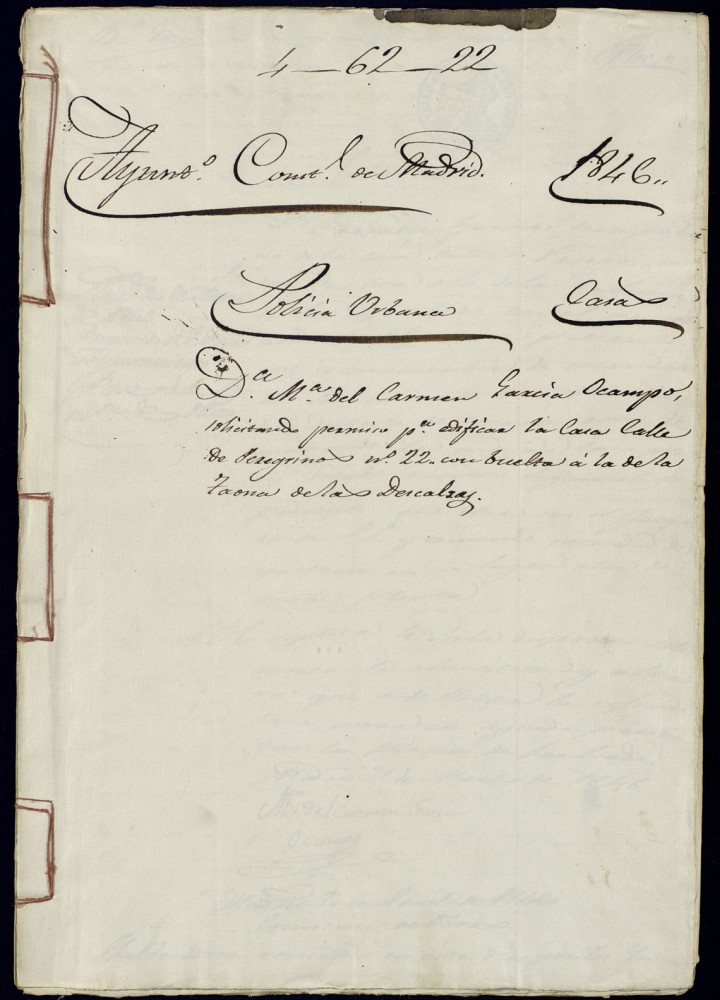 4-62-22
Ayunt.º Const.l de Madrid. 1846..
Policia Urbana Casas
D.ª M.ª del Carmen Garcia Ocampo,
solicitando permiso p.ª edificar la Casa Calle
de Peregrinos nº 22. con buelta á la de la
Taona de las Descalzas.